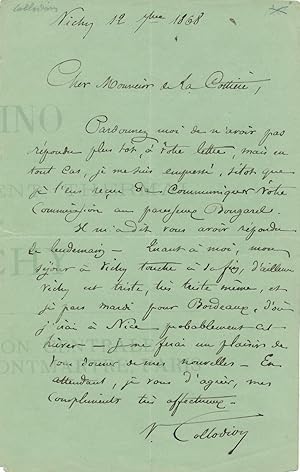 Collodion
Vichy 12 7bre 1868
Cher Monsieur de la Cottière,
Pardonnez moi de n'avoir pas
répondu plus tôt, à votre lettre, mais en
tout cas, je me suis empressé, sitôt que
je l'eus reçu de Communiquer votre
Commission au paresseux Bougarel.
Il m'a dit vous avoir répondu
le lendemain - Quant à moi, mon
séjour à Vichy touche à sa fin, d'ailleurs
Vichy est triste, très triste même, et
je pars mardi pour Bordeaux, d'où
j'irai à Nice probablement cet
hiver - Je me ferai un plaisir de
vous donner de mes nouvelles - En
attendant, je vous d'agréer, mes
Compliments très affectueux -
V. Collodion